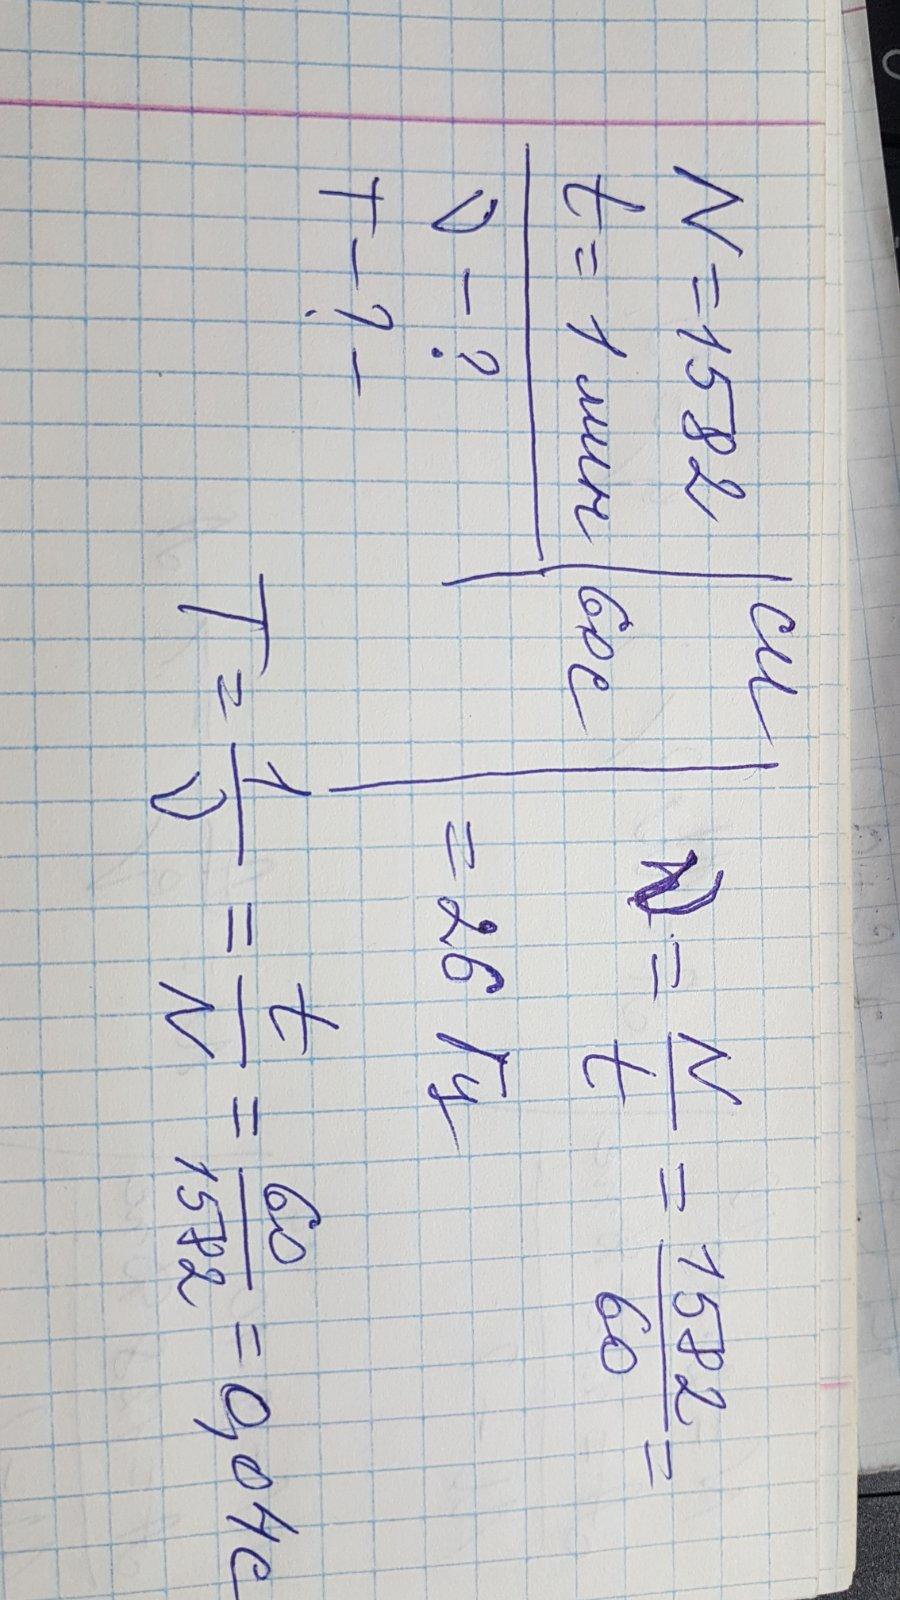 N = 1582
СИ
t = 1 мин
60с
ν - ?
T - ? -
ν = N/t = 1582/60 =
= 26 Гц
T = 1/ν = t/N = 60/1582 = 0,04с